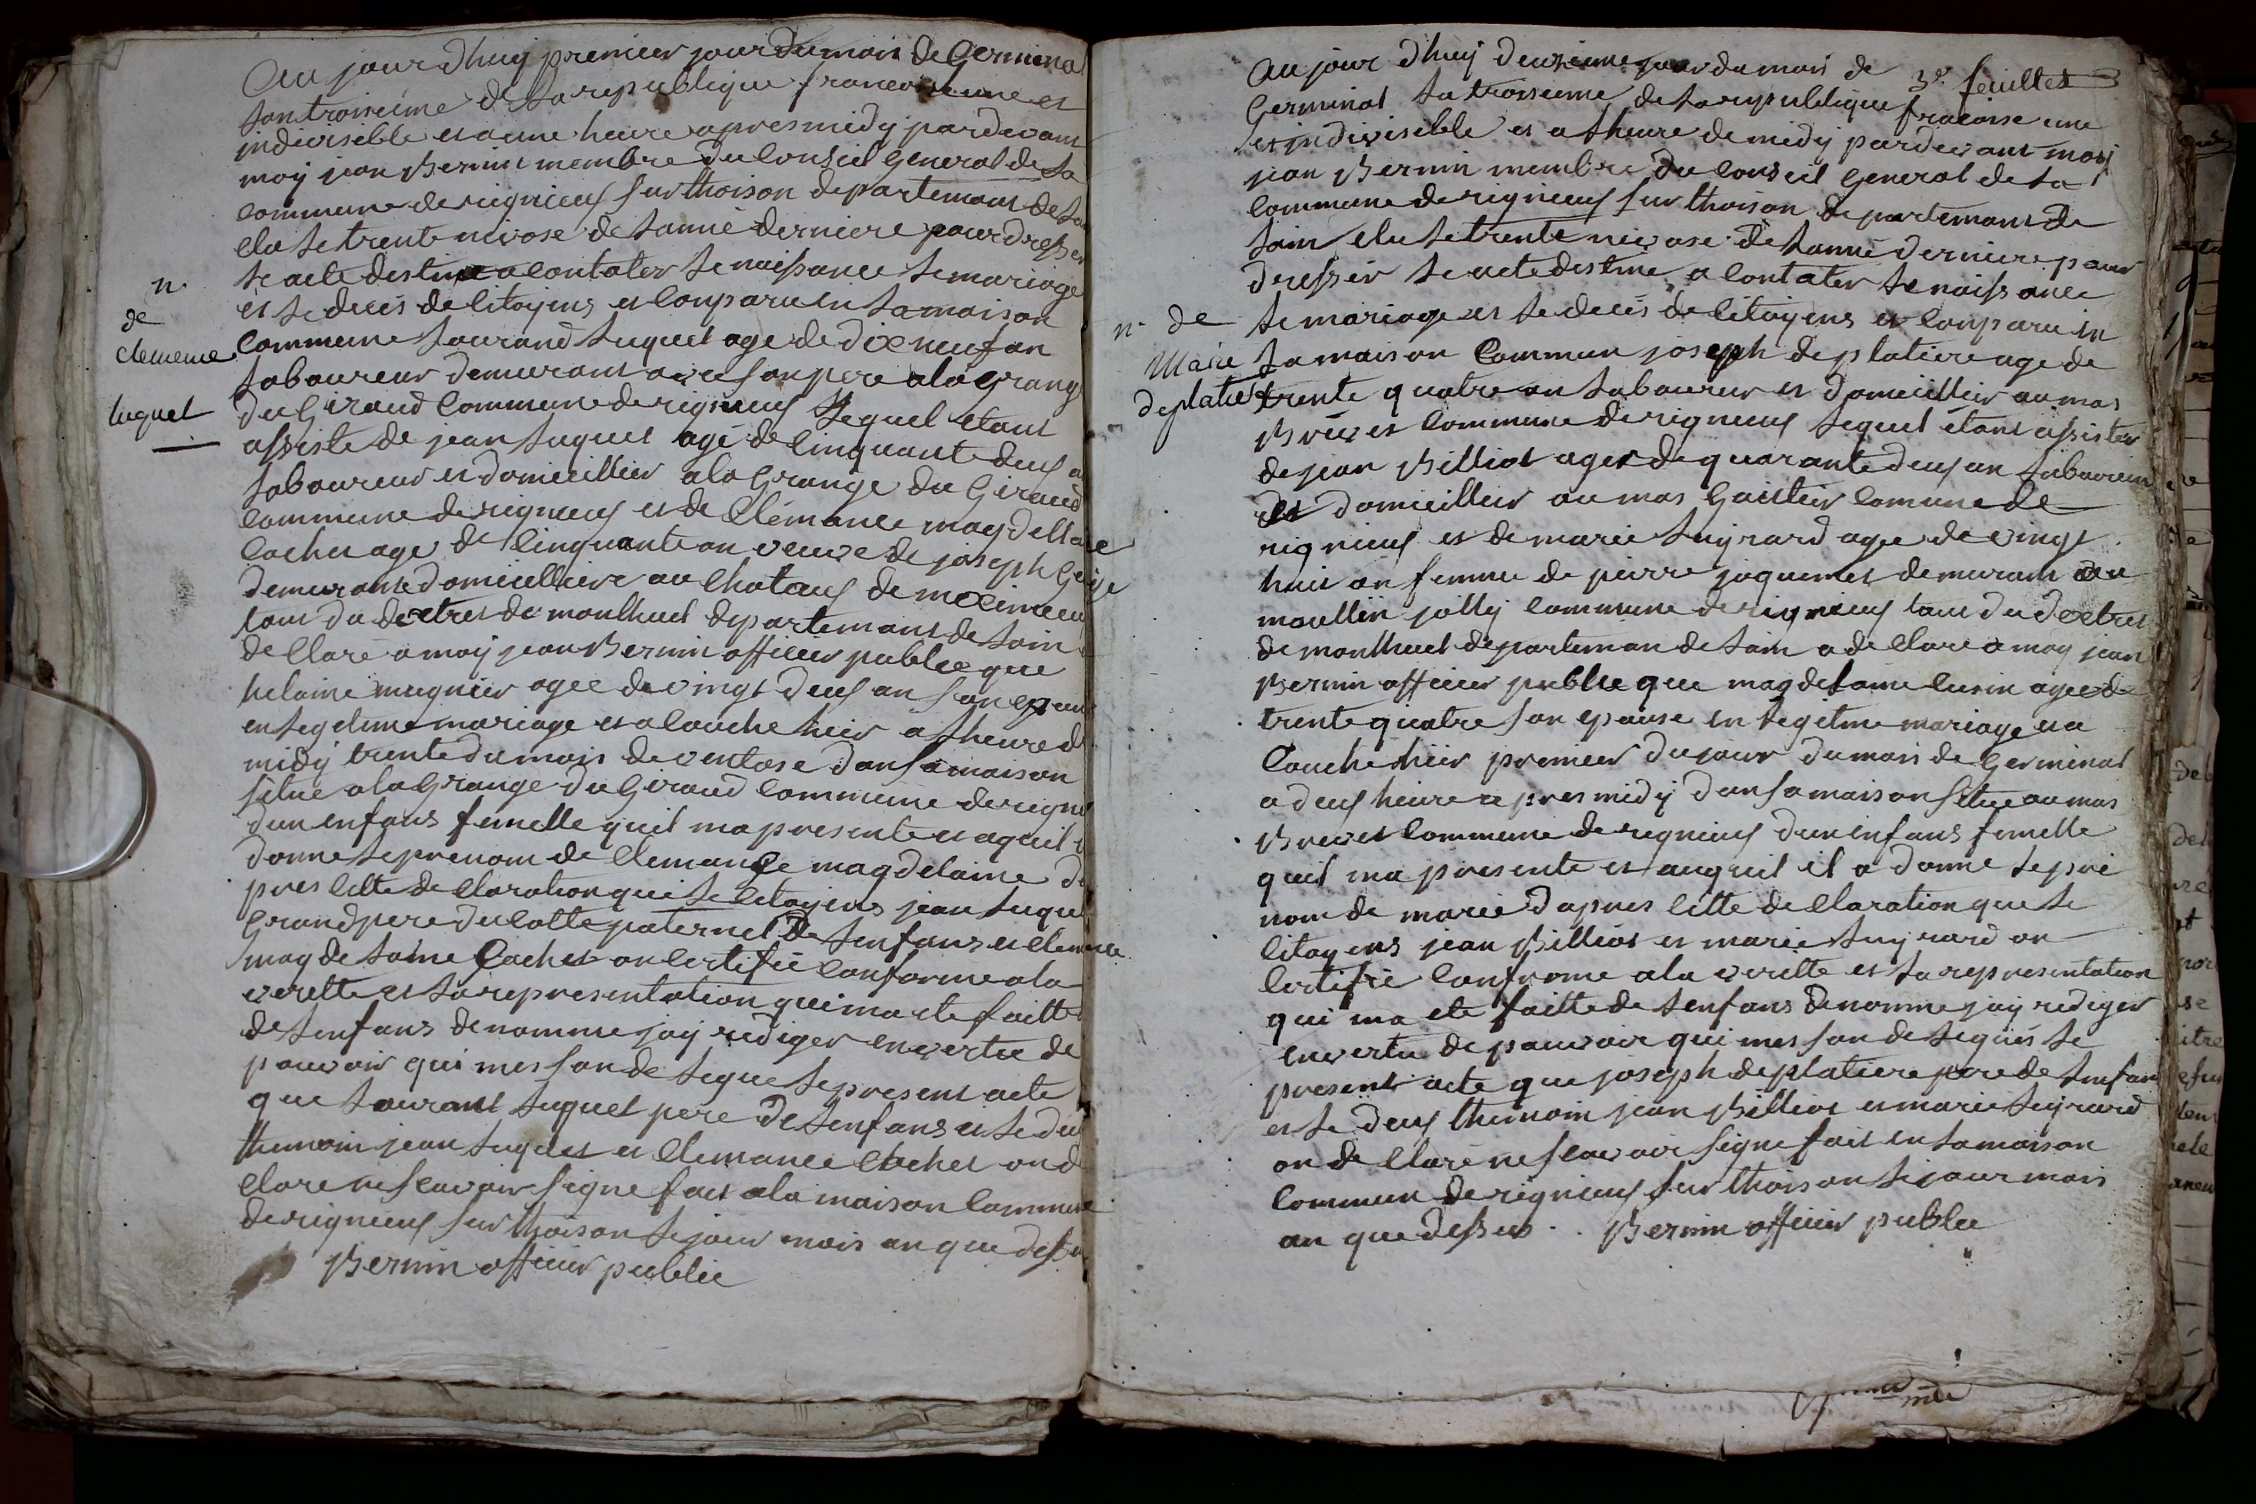 Au jour dhuy premier jour du mois de Germinal
lan troisieme de la republique francoise une et
indivisible et a une heure apres midy pardevant
moy jean Bernin membre du Conseil General de la
Commune de rignieux sur thoison departemant de lain
elu le trente nivose de lanné derniere pour dresser
le acte destine a contater le naissance le mariage
et le decés de Citoyens et Conparu en la maison
Commune laurand luquet age de dixneuf an
laboureur demurant avec son pere a la Grange
du Giraud Commune de rignieux lequel etant
assiste de jean luquet agé de Cinquante deux an
laboureur et domicillier a la Grange du Giraud
Commune de rignieux et de Clémance magdelaine
Cochet age de Cinquante an veuve de joseph
demurant domicilliere au Chataux de meximieux
tous du dextret de montluel departemant de lain
de Claré a moy jean Bernin officier public que
helaine mugnier agee de vingt deux an son epouse
en legetime mariage et acouche hier a lheure de
midy trente du mois de ventose dans sa maison
situe a la Grange du Giraud Commune de rignieux
dun enfans femelle quil ma presente et aquil a
donne le prenom de Clemance magdelaine da
pres Cette de Claration que le Citoyens jean luquet
Grand pere du Cotte paternel de lenfans et Clemance
magdelaine Cochet on Certifié Conforme a la
verette et la representation qui ma ete faitte
de lenfans denomme jay rediger en vertu de
pouvoir qui mes son delegue le present acte
que laurant luquet pere de lenfans et le deux
themoin jean luquet et Clemance Cochet on de
Clare ne scavoir signe fait a la maison Commune
de rignieux sur thoison le jour mois an que dessus
Bernin officier public
n.
de
Clemence
luquet
3e. feuillet
Au jour dhuy deuxieme jour du mois de
Germinal la troisieme de la republique fracoise une
et indivisible et a lheure de midy pardevant moy
jean Bernin membre du Conseil General de la
Commune de rignieux sur thoison departemant de
lain elu le trente nivose de lanné derniere pour
dresser le acte destine a Contater le naissance
le mariage et le decés de Citoyens et Conparu en
la maison Commun joseph deplatiere age de
trente quatre an laboureur et domicillier au mas
Brevet Commune de rignieux lequel étant assister
de jean Billiot ager de quarante deux an laboureur
et domicillier au mas Gaitier Comune de
rignieux et de marie luyrard agee de vingt
huit an femme de pierre jaquemet demurant au
moullin jolly Commune de rignieux tous du dextret
de montluel departeman de lain a de Clare a moy jean
Bernin officier public que magdelaine agee de
trente quatre son epouse en legetime mariage est a
Couche hier premier du jour du mois de Germinal
a deux heure apres midy dans sa maison situe au mas
Brevet Commune de rignieux dun enfans femelle
quil ma presente et auquil il a donne le pré
nom de marie dapres Cette de Claration que le
Citoyens jean Billiot et marie luyrard on
Certifié Confrome a la verette et la representation
qui ma ete faitte de lenfans denomme jay rediger
en vertu de pouvoir qui mes son delegués le
present acte que joseph deplatiere pere de lenfans
et le deux themoin jean Billiot et marie luyrard
on de Claré ne scavoir signe fait en la maison
Commun de rignieux sur thoison le jour mois
an que dessus. Bernin officier public
n. de
Marie
deplatiere